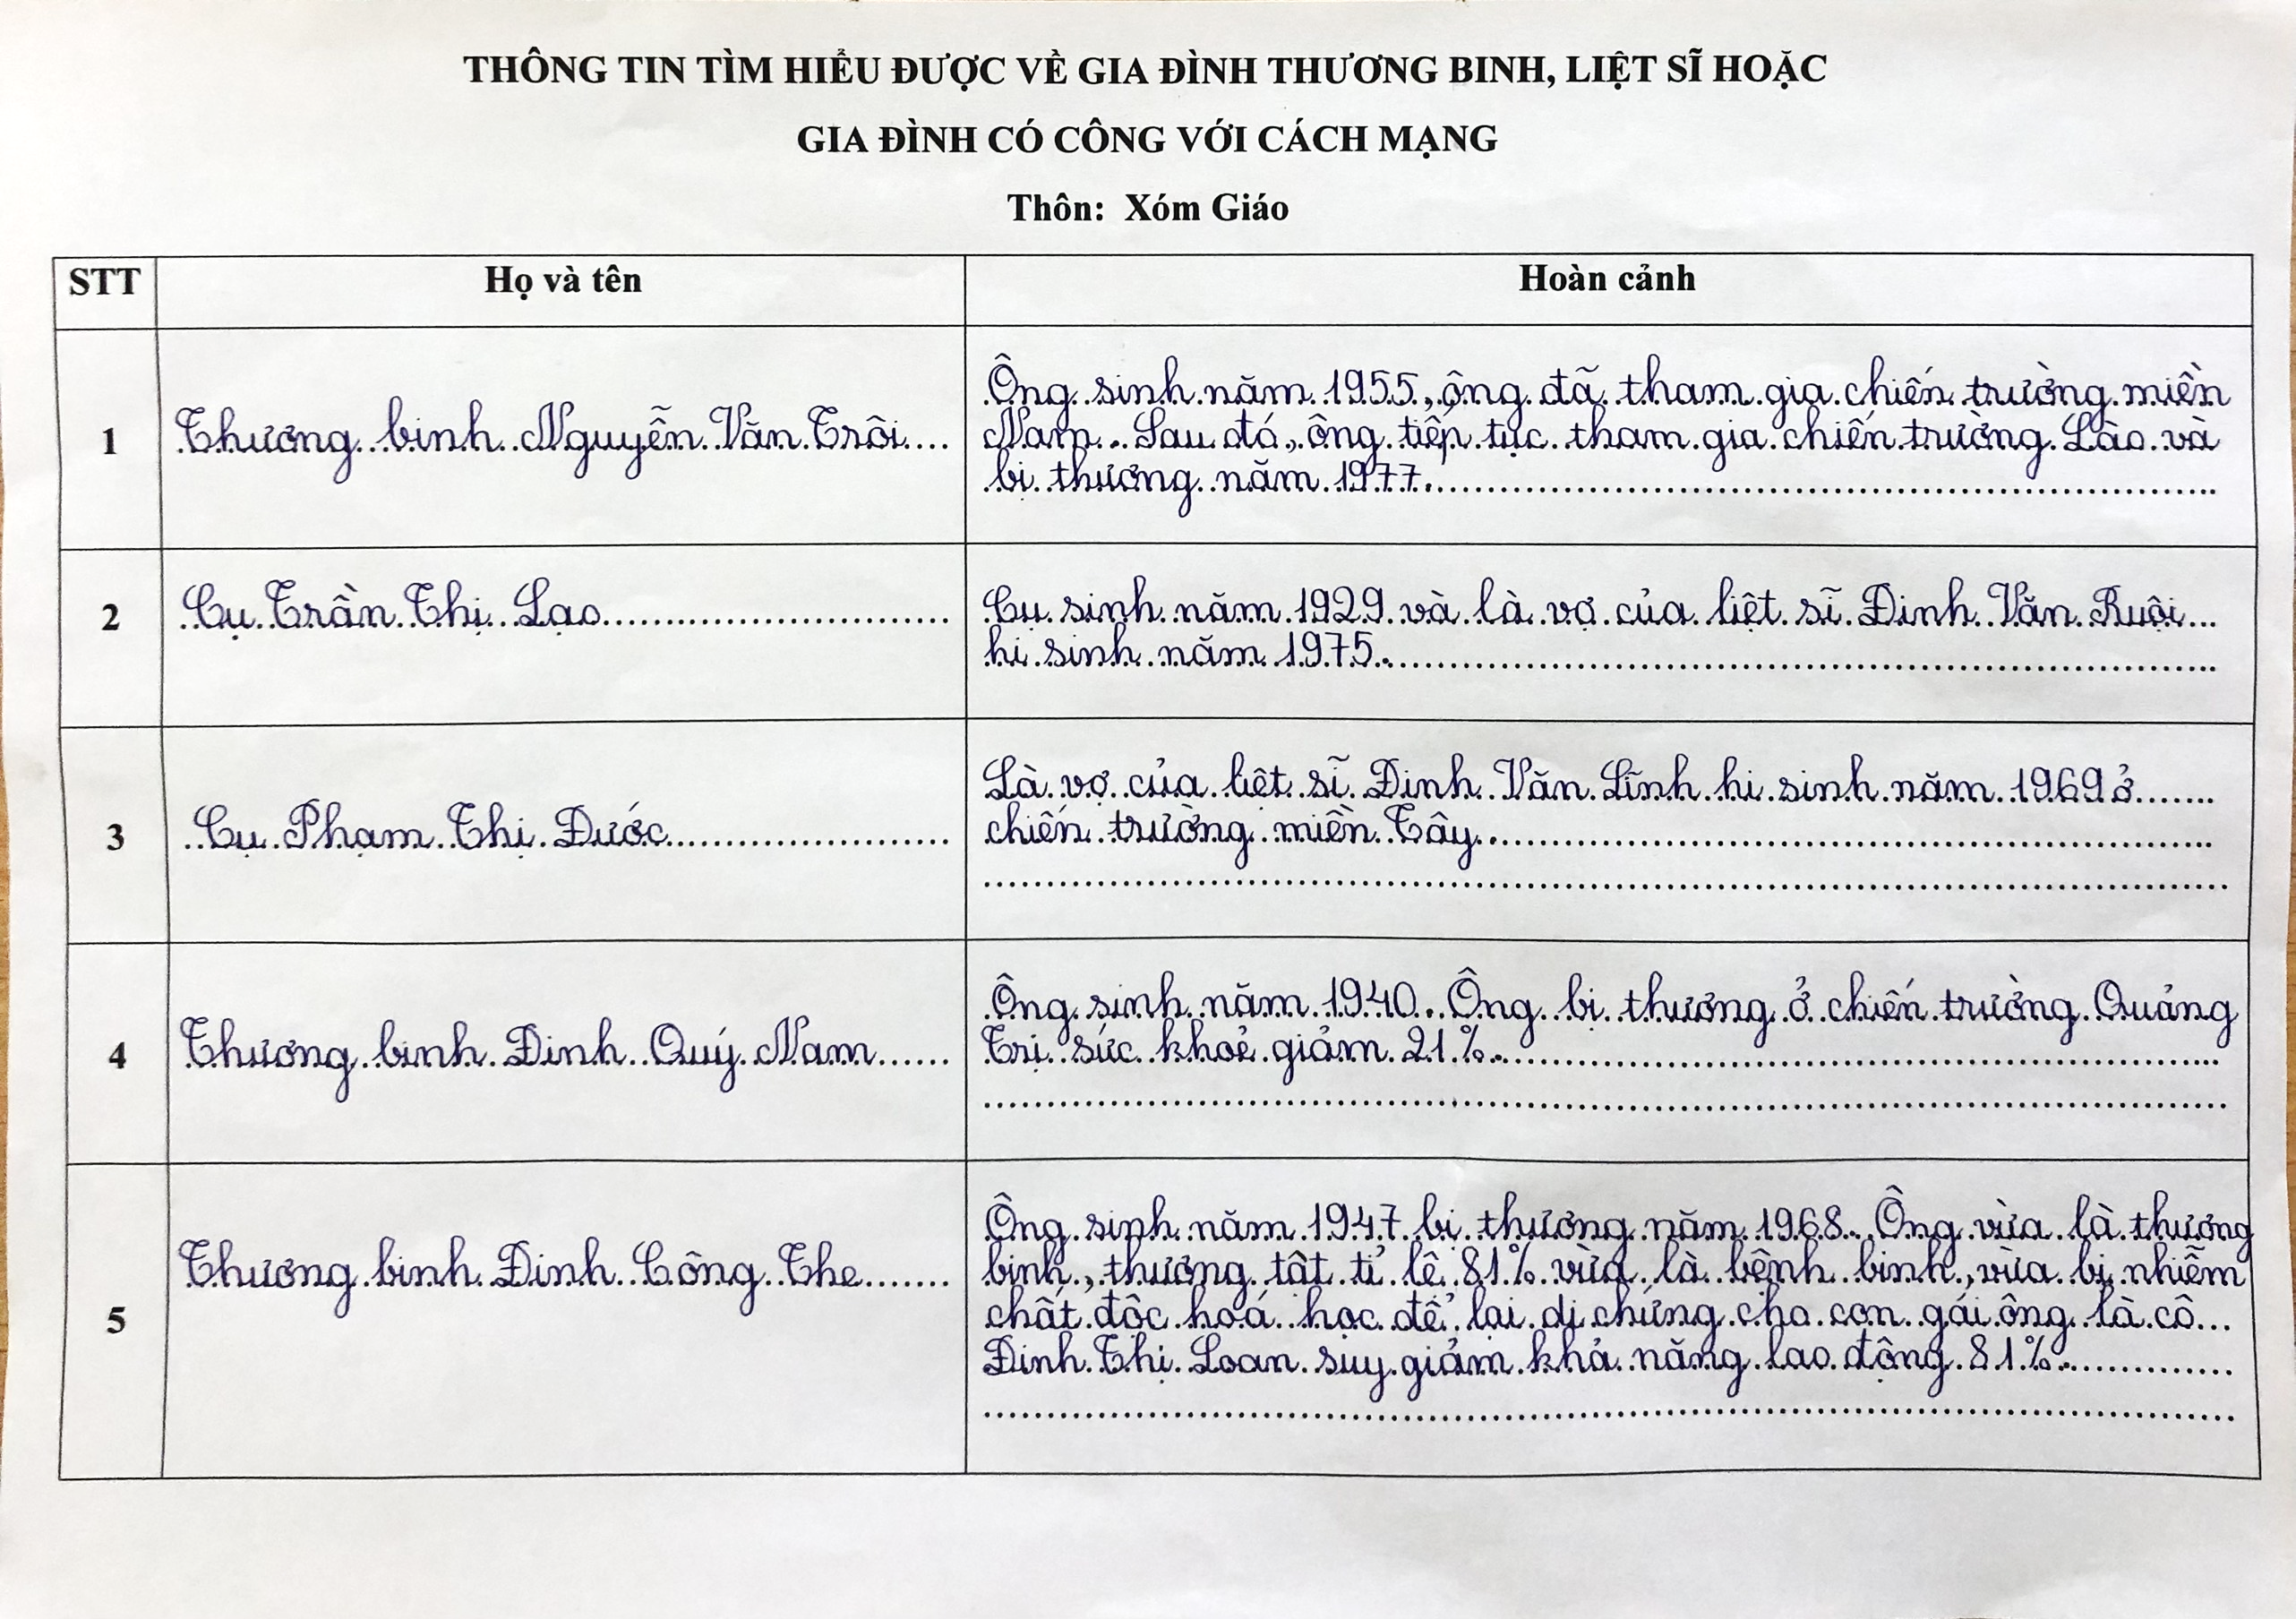 THÔNG TIN TÌM HIỂU ĐƯỢC VỀ GIA ĐÌNH THƯƠNG BINH, LIỆT SĨ HOẶC
GIA ĐÌNH CÓ CÔNG VỚI CÁCH MẠNG
Thôn: Xóm Giáo
STT Họ và tên Hoàn cảnh
1
Thương binh Nguyễn Văn Trôi
Ông sinh năm 1955, ông đã tham gia chiến trường miền
Nam. Sau đó, ông tiếp tục tham gia chiến trường Lào và
bị thương năm 1977.
2
Cụ Trần Thị Lạo
Cụ sinh năm 1929 và là vợ của liệt sĩ Đinh Văn Ruội
hi sinh năm 1975.
3
Cụ Phạm Thị Đước
Là vợ của liệt sĩ Đinh Văn Lĩnh hi sinh năm 1969 ở
chiến trường miền Tây.
4
Thương binh Đinh Quý Nam
Ông sinh năm 1940. Ông bị thương ở chiến trường Quảng
Trị sức khoẻ giảm 21%.
5
Thương binh Đinh Công The
Ông sinh năm 1947 bị thương năm 1968. Ông vừa là thương
binh, thương tật tỉ lệ 81% vừa là bệnh binh, vừa bị nhiễm
chất độc hoá học để lại di chứng cho con gái ông là cô
Đinh Thị Loan suy giảm khả năng lao động 81%.